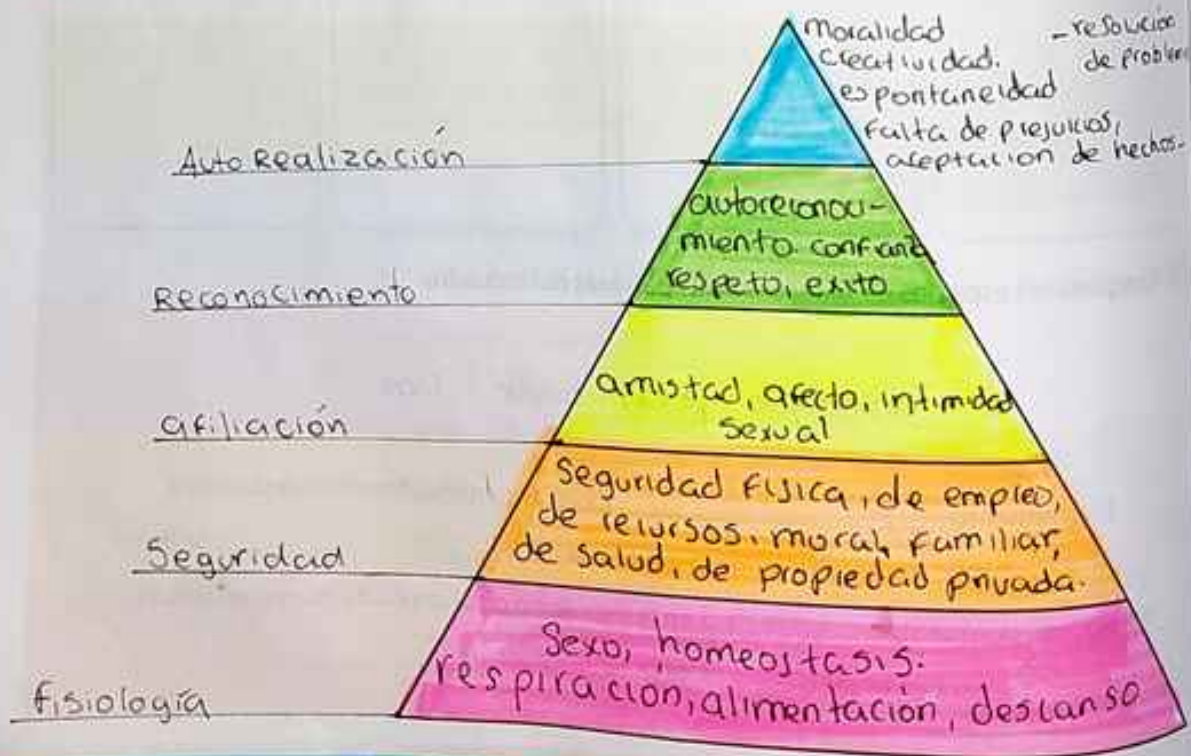 moralidad
creatividad.
- resolución
de problem
espontaneidad
falta de prejuicios,
aceptacion de hechos-
AutoRealización
autoreconoci-
miento. confianz
respeto, exito
Reconocimiento
amistad, afecto, intimidad
sexual
afiliación
Seguridad Física, de empleo,
de recursos, moral, familiar,
de salud, de propiedad privada.
Seguridad
Sexo, homeostasis.
respiración, alimentación, descanso
fisiología